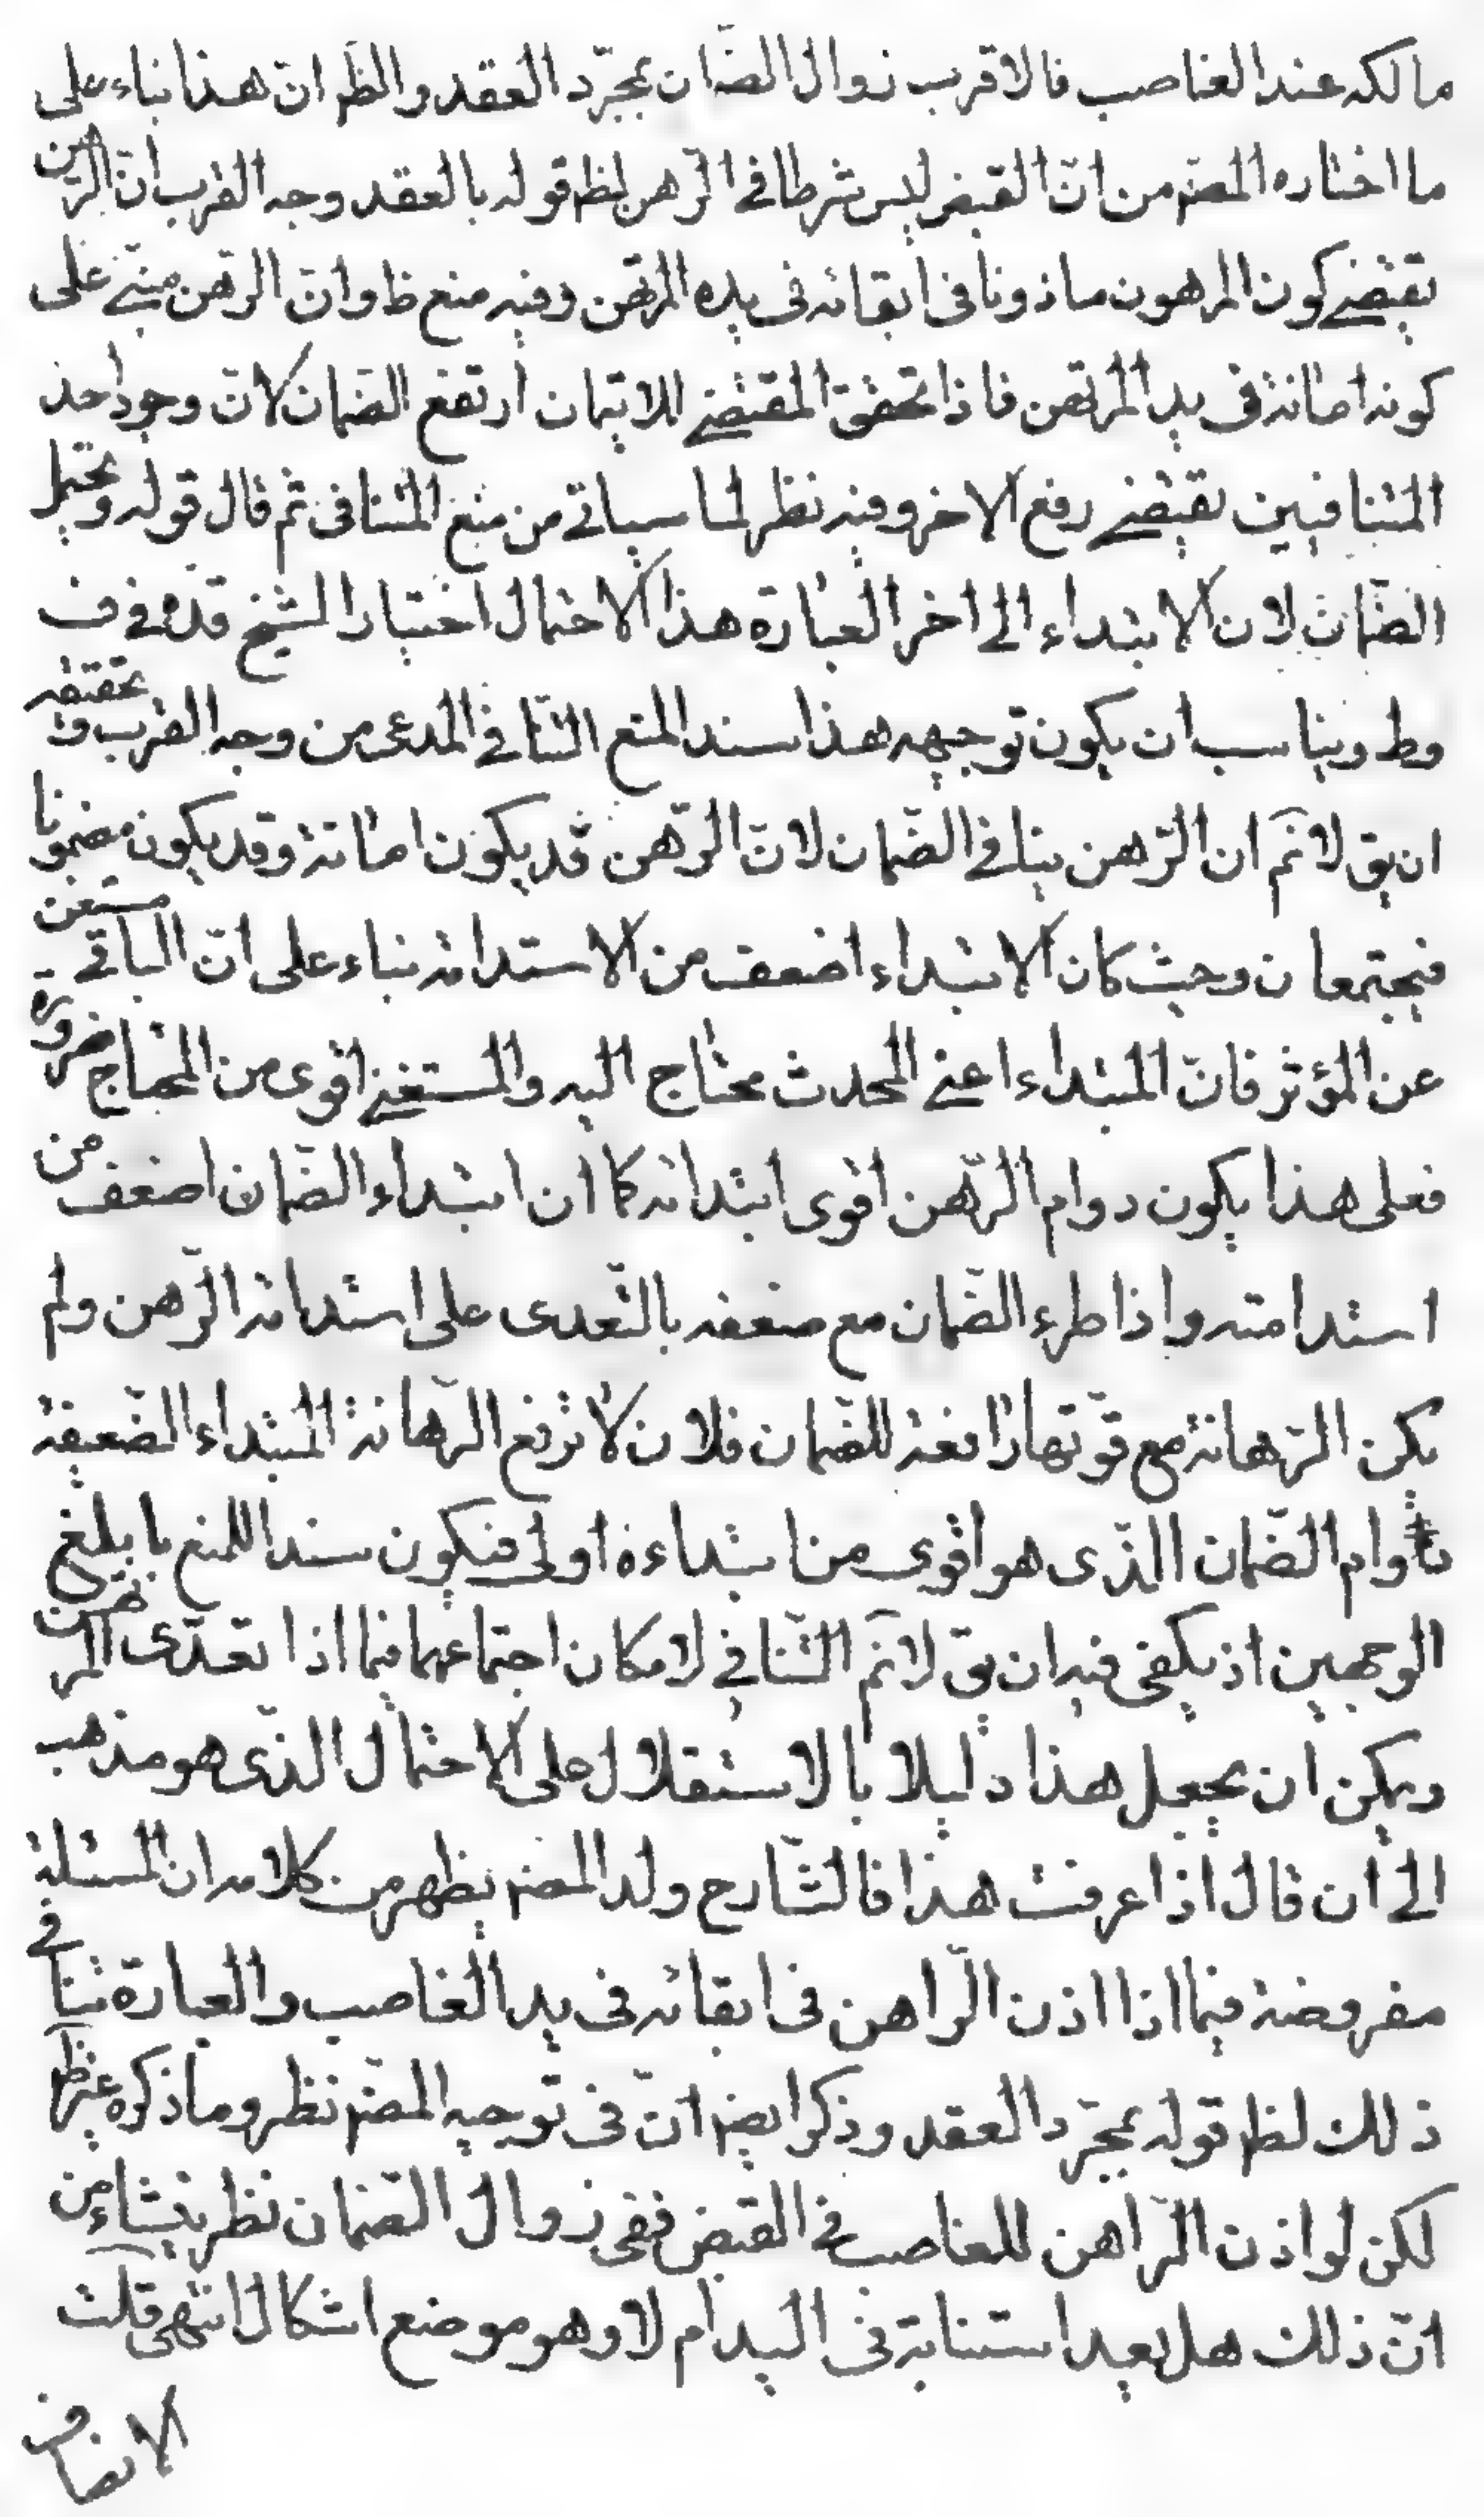 مالكه عند الغاصب فالاقرب زوال الضّمان بمجرّد العقد والظّم انّ هذا بناء على
ما اختاره المصّم من انّ القبض ليس شرطا فى الرّهن لظم قوله بالعقد وجه القرب انّ الرّهن
يقتضى كون المرهون ماذونا فى ابقائه فى يده المرتهن وفيه منع ظا وانّ الرّهن مبنىّ على
كونه امانة فى يد المرتهن فاذا تحقق المقتضى للايتمان ارتفع الضمان لانّ وجود احد
المتنافيين يقتضى رفع الاخر وفيه نظر لما سياتى من منع التنافى ثم قال قوله ويحتمل
الضّمان لان الابتداء الى اخر العبارة هذا الاحتمال اختيار الشيخ قده فى ف
وط ويناسب ان يكون توجيهه هذا سند المنع التّنافى المدعى من وجه القرب وتحقيقه
ان يق لا نمّ ان الرّهن ينافى الضّمان لانّ الرّهن قد يكون امانة وقد يكون مضمونا
فيجتمعان وحيث كان الابتداء اضعف من الاستدامة بناء على انّ الباقى مستغن
عن المؤثر فانّ المبتداء اعنى المحدث محتاج اليه والمستغنى اقوى من المحتاج ضرورة
فعلى هذا يكون دوام الرّهن اقوى ابتدائه كما ان ابتداء الضّمان اضعف من
استدامته واذا طرء الضّمان مع ضعفه بالتّعدى على استدامة الرّهن ولم
يكن الرّهانة مع قوّتها رافعة للضّمان فلان لا ترفع الرّهانة المبتداء الضّعيفة
دوام الضّمان الذّى هو اقوى من ابتداءه اولى فيكون سندا للمنع بابلغ
الوجهين اذ يكفى فيه ان يق لا نمّ التّنافى لامكان اجتماعهما فيما اذا تعدّى المرتهن
ويمكن ان يجعل هذا دليلا بالاستقلال على الاحتمال الذّى هو مذهب
الى ان قال اذا عرفت هذا فالشّارح ولد المصّم يظهر من كلامه ان المسئلة
مفروضة فيما اذا اذن الرّاهن فى ابقائه فى يد الغاصب والعبارة تنافى
ذلك لظم قوله بمجرّد العقد وذكر ايضم انّ فى توجيه المصّم نظر وما ذكره غير ظم
لكن لو اذن الرّاهن للغاصب فى القبض ففى زوال الضمان نظر ينشاء من
انّ ذلك هل يعد استنابة فى اليد ام لا وهو موضع اشكال انتهى قلت
الانصاف